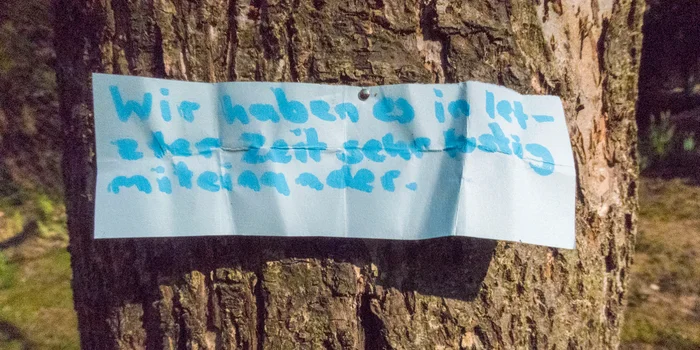 Wir haben es in let-
zter Zeit sehr
miteinander.